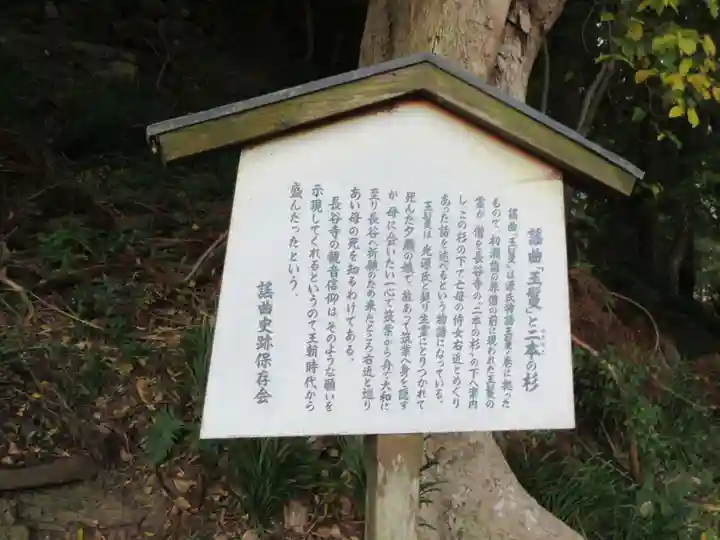 謡曲「玉鬘」と二本の杉
謡曲「玉鬘」は源氏物語玉鬘の巻に拠った
もので、初瀬詣の旅僧の前に現われた玉鬘の
霊が、僧を長谷寺の〝二本の杉〟の下へ案内
し、この杉の下で亡母の侍女右近とめぐり
あった話を述べるという物語になっている。
玉鬘は、光源氏と契り生霊にとりつかれて
死んだ夕顔の娘で、故あって筑紫へ身を隠す
が、母に会いたい一心で筑紫から舟で大和に
至り長谷へ祈願のため来たところ、右近と巡り
あい母の死を知るわけである。
長谷寺の観音信仰はそのような願いを
示現してくれるというので王朝時代から
盛んだったという。
謡曲史跡保存会